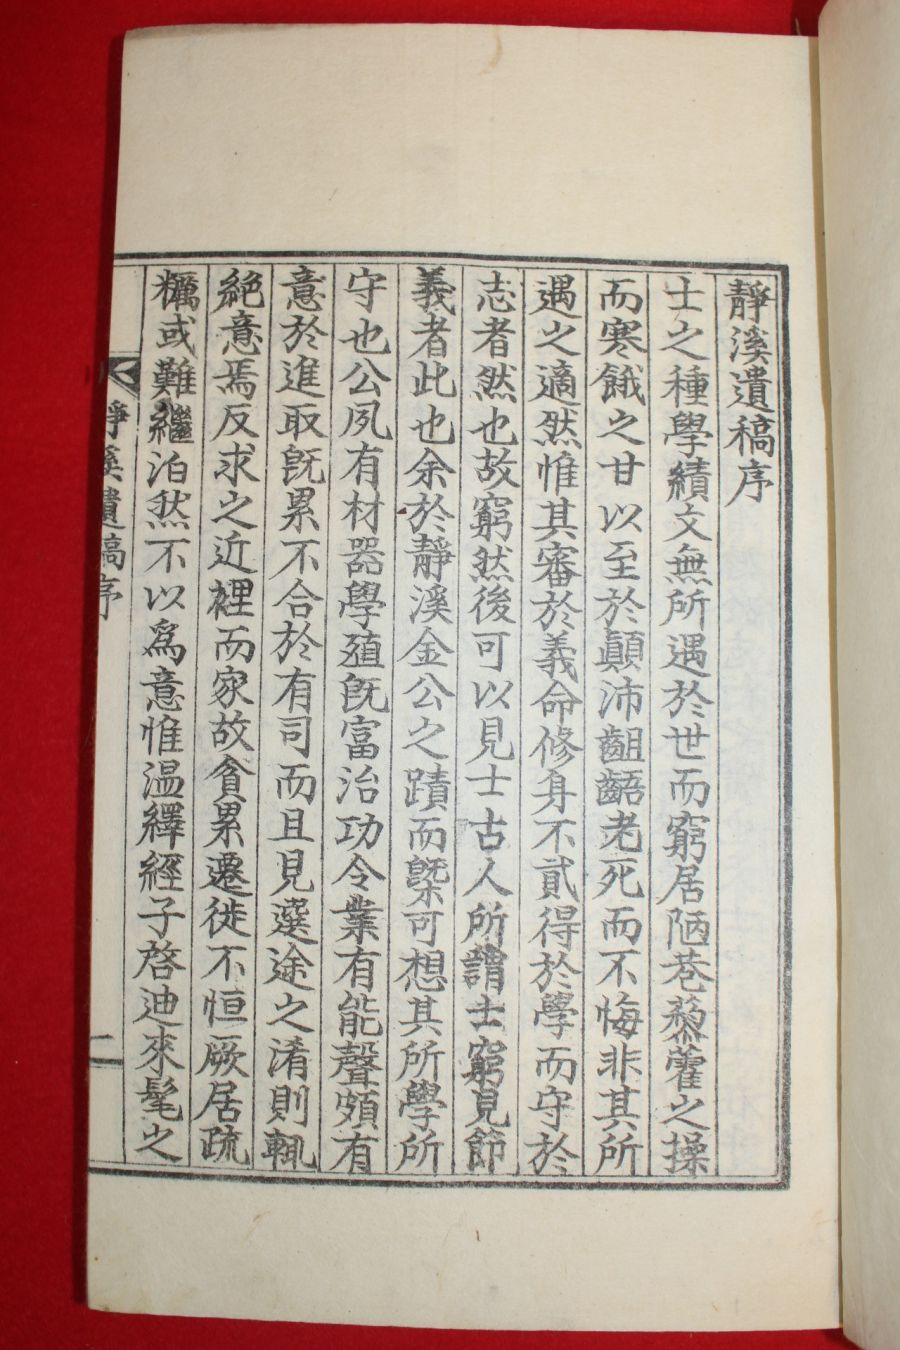 靜溪遺稿序
士之種學績文無所遇於世而窮居陋巷藜藿之操
而寒餓之甘以至於顚沛齟齬老死而不悔非其所
遇之適然惟其審於義命修身不貳得於學而守於
志者然也故窮然後可以見士古人所謂士窮見節
義者此也余於靜溪金公之蹟而槩可想其所學所
守也公夙有材器學殖旣富治功令業有能聲頗有
意於進取旣累不合於有司而且見選途之淆則輒
絶意焉反求之近裡而家故貧累遷徙不恒厥居疏
糲或難繼泊然不以爲意惟温繹經子啓迪來髦之
靜溪遺稿序
二